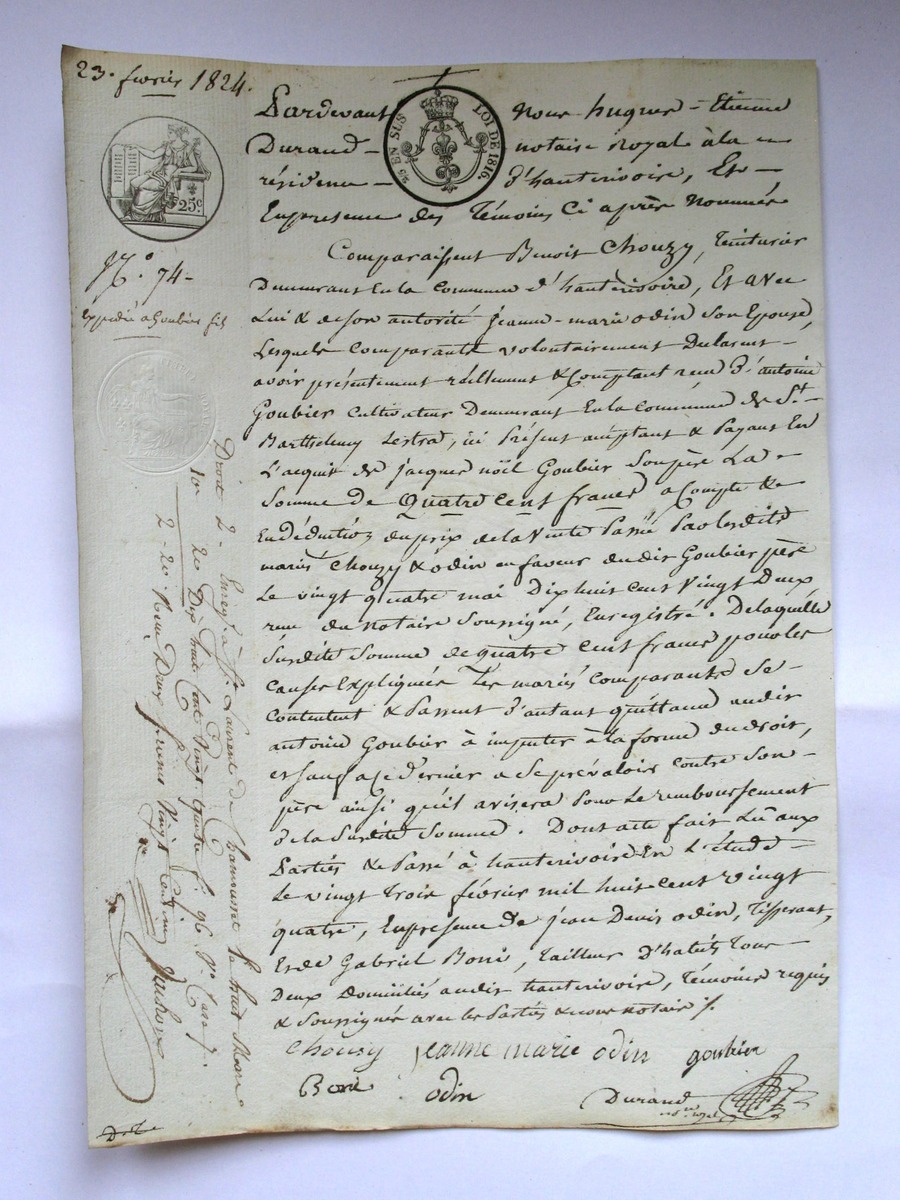 23. fevrier 1824.
Pardevant Nous hugues - Etienne
Durand - notaire Royal à la -
résidence - d'hauterivoire, Et -
Enpresence des Témoins Ci après Nommés
25 EN SUS LOI DE 1816.
25.c
N.º 74 -
Expédié a Goubier fils
Comparaissent Benoit Chouzy, Teinturier
Demeurant En la Commune d'hauterivoire, Et avec
Lui & de son autorité jeanne - marie odin son Epouse,
Lesquels Comparants volontairement Declarent -
avoir présentement réellement & Comptant recu d'antoine
Goubier Cultivateur Demeurant En la Commune de St.
Barthelemy Lestra, ici Présent acceptant & Payant En
L'acquit de jacques noël Goubier Son père La -
Somme de Quatre Cent francs a Compte &
En Déduction du prix de la Vente Passée Par lesdits
mariés Chouzy & odin en faveur dudit Goubier père
Le vingt quatre mai Dix huit Cent Vingt Deux
recu du Notaire Soussigné, Enregistré. Delaquelle
Susdite Somme de quatre Cent francs pour les
Causes Expliquées Les mariés Comparants Se -
Contentent & Passent d'autant quittance audit
antoine Goubier à imputer à la forme du droit,
et sauf a ce Dernier a Se prévaloir Contre Son -
père ainsi qu'il avisera Pour Le remboursement
de la Susdite Somme. Dont acte fait Lu aux
Parties & Passé à hauterivoire En L'étude -
Le vingt trois février mil huit Cent vingt
quatre, Enpresence de jean Denis odin, Tisserant,
Et de Gabriel Boni, Tailleur d'habits Tous -
Deux Domiciliés audit hauterivoire, Témoins requis
& Soussignés avec les Parties & nous Notaire
Chousy jeanne marie odin goubier
odin
Durand
n.re royal
Enreg. à St. Laurent de Chamousset
Droit 2 -
10e 20
2 - 20.
Dix huit Cent Vingt quatre f.º 96
Reçu Deux francs Vingt Centimes